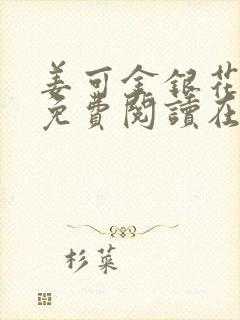 姜可金銀花
免費閱讀在
杉菜